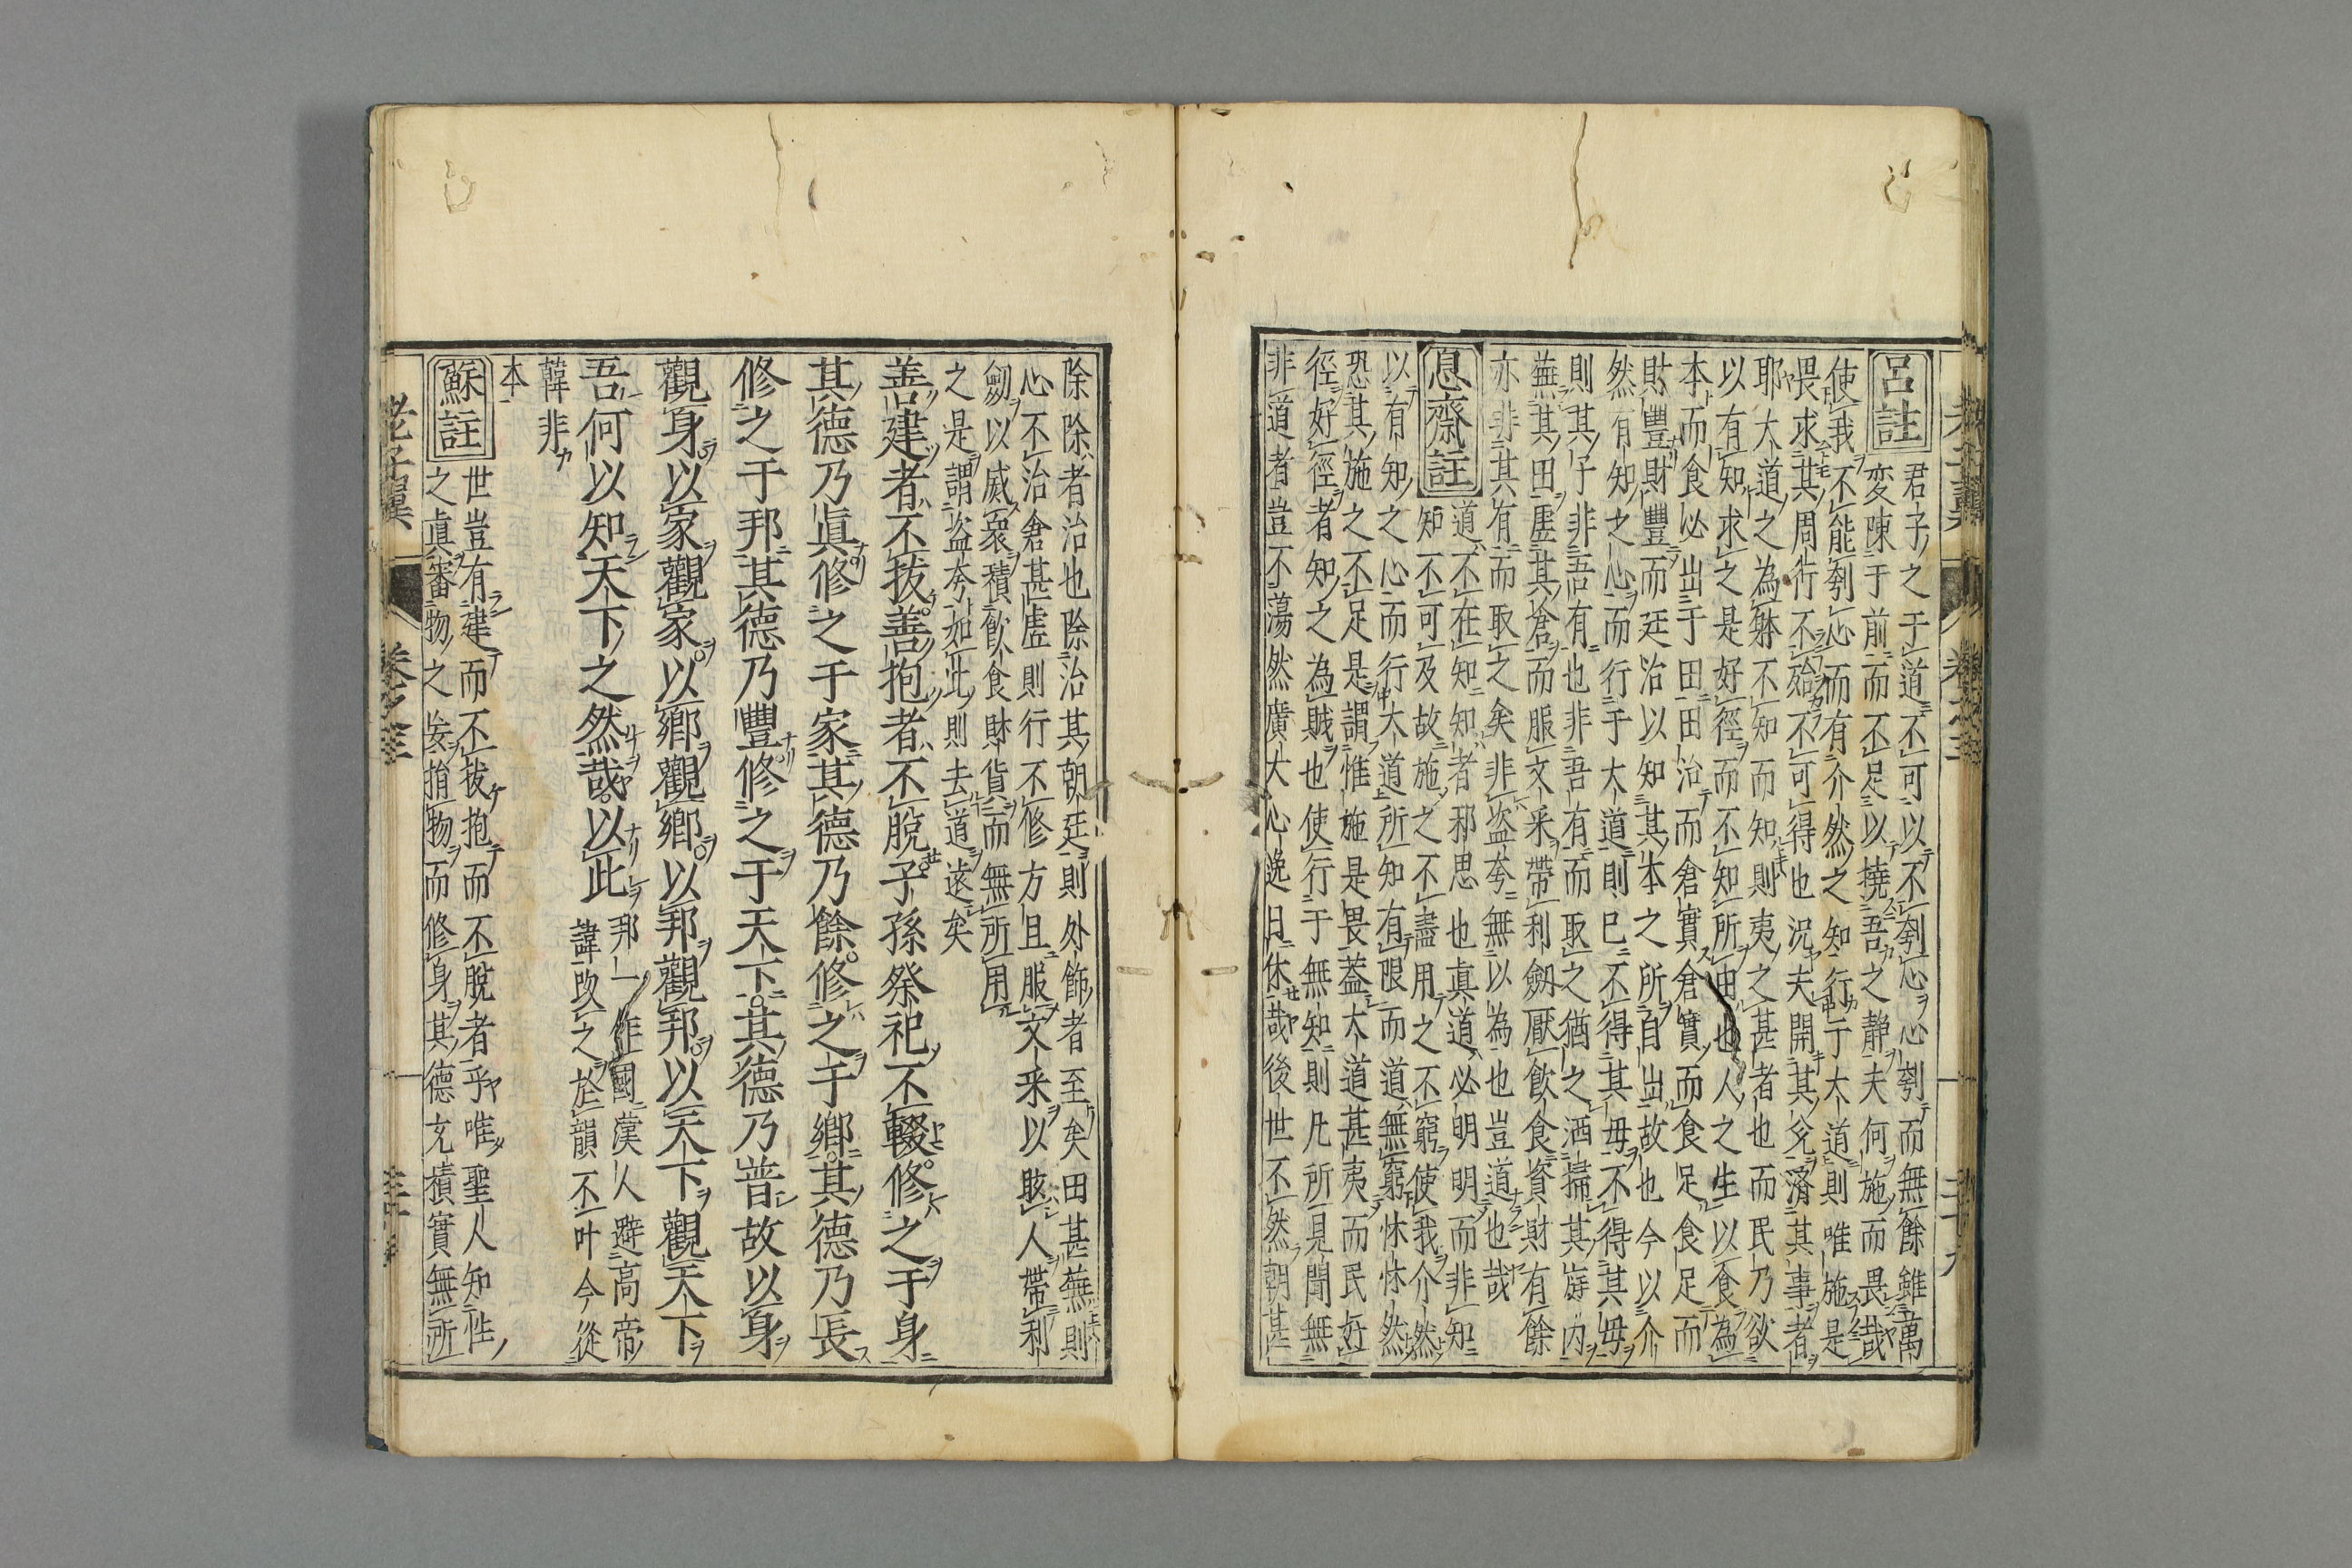 老子翼 卷之三 二十九
呂註
君子之于道不可以不刳心心刳而無餘雖萬
変陳于前而不足以撓吾之静夫何施而畏哉
使我不能刳心而有介然之知行于大道則唯施是
畏求其周行不殆不可得也況夫開其兌濟其事者
耶大道之為躰不知而知則夷之甚者也而民乃欲
以有知求之是好徑而不知所由也人之生以食為
本而食必出于田田治而倉實倉實而食足食足而
財豐財豐而廷治以知其本之所自出故也今以介
然有知之心而行于大道則已不得其毋不得其毋
則其子非吾有也非吾有而取之猶之洒掃其庭内
蕪其田虛其倉而服文采帶利劒厭飲食資財有餘
亦非其有而取之矣非盜夸無以為也豈道也哉
息齋註
道不在知知者邪思也真道必明明而非知
知不可及故施之不盡用之不窮使我介然
以有知之心而行大道所知有限而道無窮怵怵然
恐其施之不足是謂惟施是畏蓋大道甚夷而民好
徑好徑者知之為賊也使行于無知則凡所見聞無
非道者豈不蕩然廣大心逸日休哉後世不然朝甚
除除者治也除治其朝廷則外飾者至矣田甚蕪則
心不治倉甚虛則行不修方且服文采以眩人帶利
劒以威衆積飲食財貨而無所用
之是謂盜夸如此則去道遠矣
善建者不拔善抱者不脫子孫祭祀不輟修之于身
其德乃眞修之于家其德乃餘修之于鄉其德乃長
修之于邦其德乃豐修之于天下其德乃普故以身
觀身以家觀家以鄉觀鄉以邦觀邦以天下觀天下
吾何以知天下之然哉以此
邦一作國漢人避高帝
諱改之於韻不叶今從
韓非
本
蘇註
世豈有建而不拔抱而不脫者乎唯聖人知性
之眞審物之妄捐物而修身其德充積實無所
老子翼 卷之三